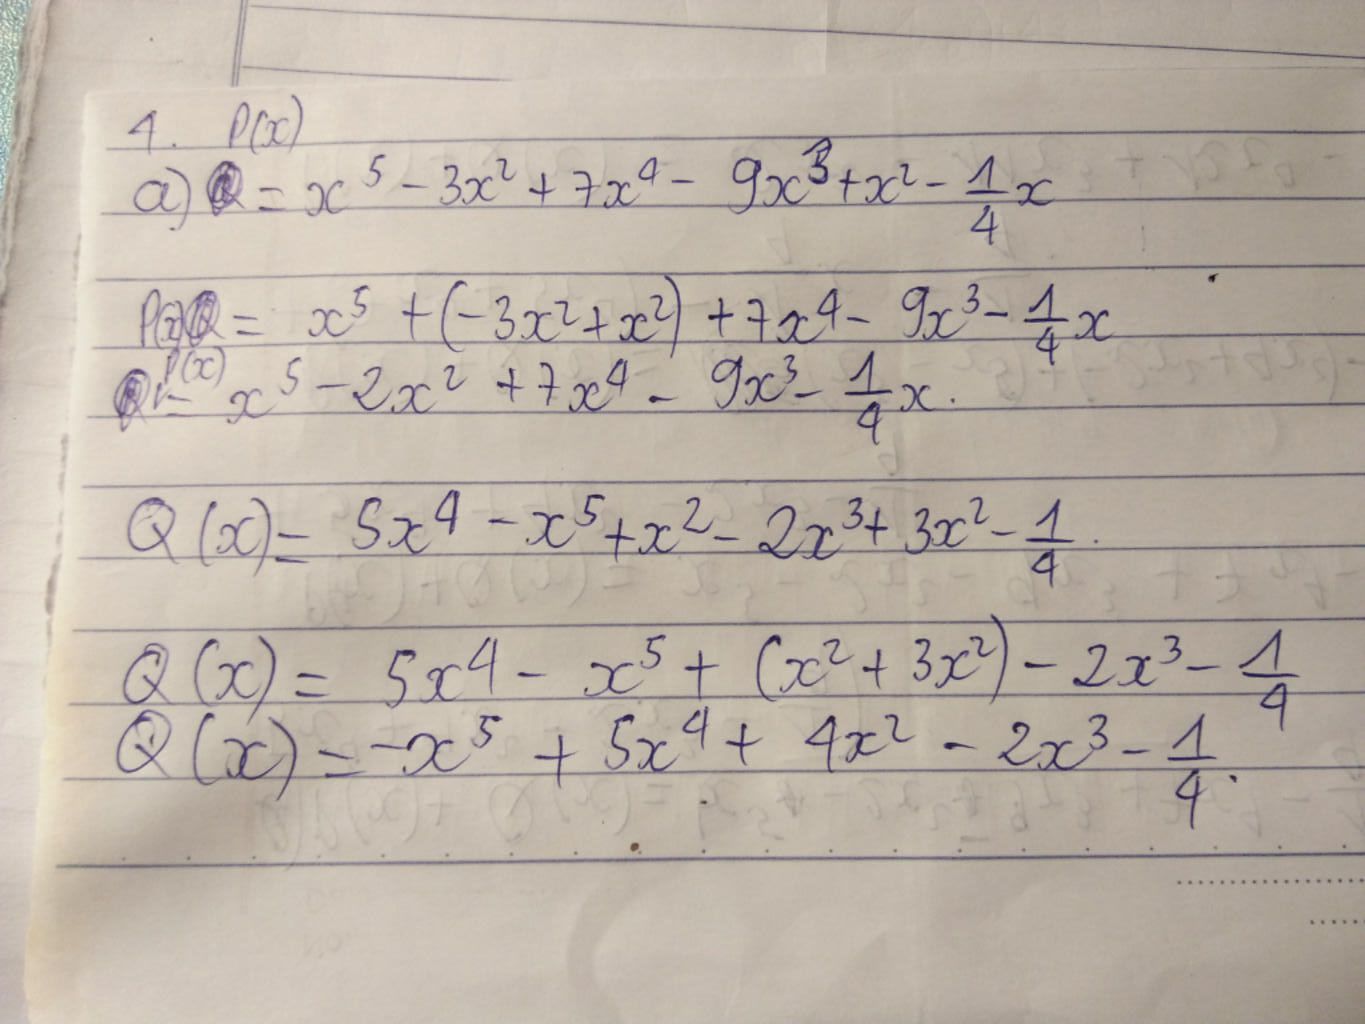 4. P(x)
a) = x⁵ - 3x² + 7x⁴ - 9x³ + x² - 1/4 x
P(x) = x⁵ + (-3x² + x²) + 7x⁴ - 9x³ - 1/4 x
P(x) = x⁵ - 2x² + 7x⁴ - 9x³ - 1/4 x.
Q(x) = 5x⁴ - x⁵ + x² - 2x³ + 3x² - 1/4.
Q(x) = 5x⁴ - x⁵ + (x² + 3x²) - 2x³ - 1/4
Q(x) = -x⁵ + 5x⁴ + 4x² - 2x³ - 1/4.